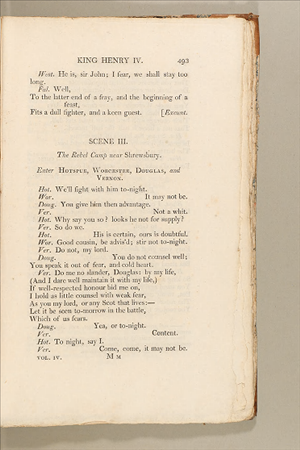 KING HENRY IV. 493
West. He is, sir John; I fear, we shall stay too
long.
Fal. Well,
To the latter end of a fray, and the beginning of a
feast,
Fits a dull fighter, and a keen guest. [Exeunt.
SCENE III.
The Rebel Camp near Shrewsbury.
Enter HOTSPUR, WORCESTER, DOUGLAS, and
VERNON.
Hot. We'll fight with him to-night.
Wor. It may not be.
Doug. You give him then advantage.
Ver. Not a whit.
Hot. Why say you so? looks he not for supply?
Ver. So do we.
Hot. His is certain, ours is doubtful.
Wor. Good cousin, be advis'd; stir not to-night.
Ver. Do not, my lord.
Doug. You do not counsel well;
You speak it out of fear, and cold heart.
Ver. Do me no slander, Douglas: by my life,
(And I dare well maintain it with my life,)
If well-respected honour bid me on,
I hold as little counsel with weak fear,
As you my lord, or any Scot that lives:—
Let it be seen to-morrow in the battle,
Which of us fears.
Doug. Yea, or to-night.
Ver. Content.
Hot. To night, say I.
Ver. Come, come, it may not be.
VOL. IV. M M